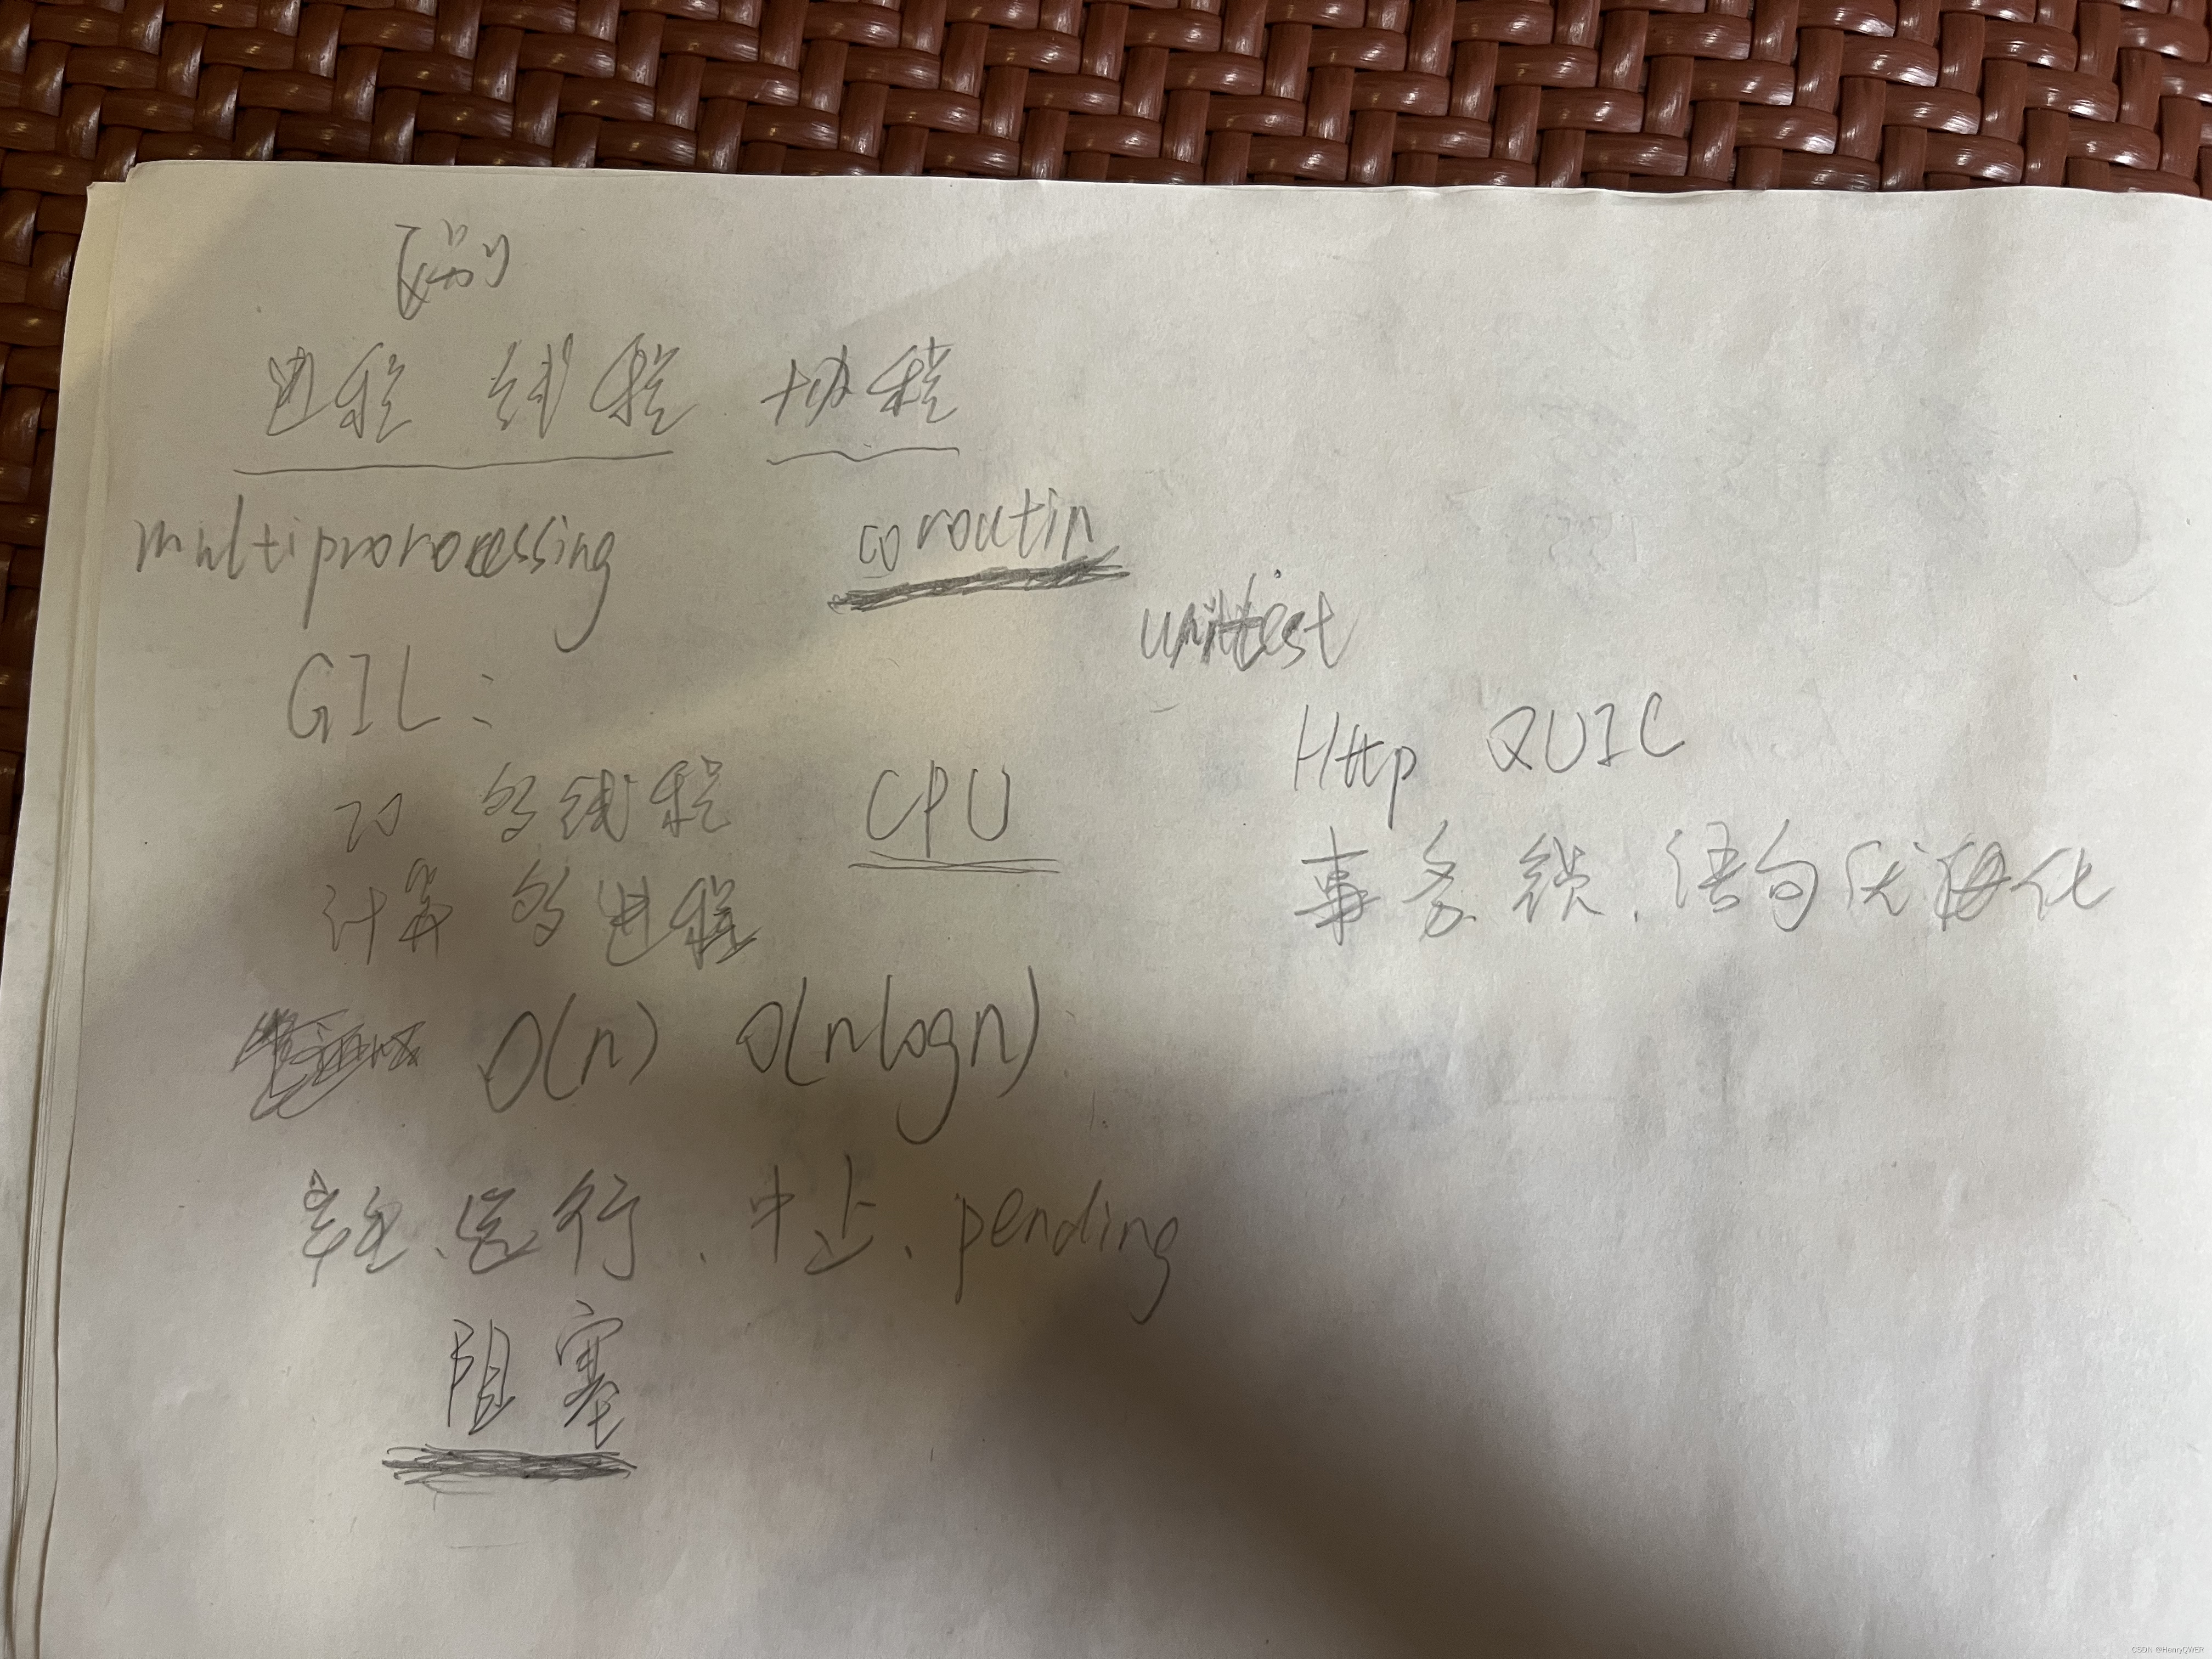 区别
进程 线程 协程
multiprorocessing coroutin
unittest
GIL:
IO 多线程 CPU
计算 多进程
Http QUIC
事务 锁、语句优化
O(n) O(nlogn)
运行、中止、pending
阻塞
CSDN @HenryQWER